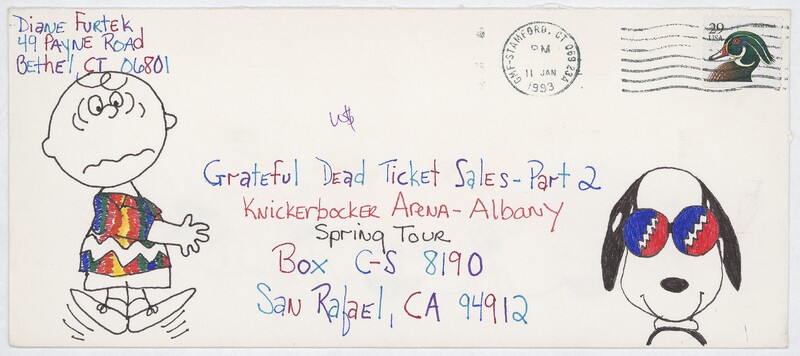 Diane Furtek
49 Payne Road
Bethel, CT 06801
GMF-STAMFORD, CT 069 23A
PM
11 JAN
1993
29
USA
W$
Grateful Dead Ticket Sales-Part 2
Knickerbocker Arena-Albany
Spring Tour
Box C-S 8190
San Rafael, CA 94912